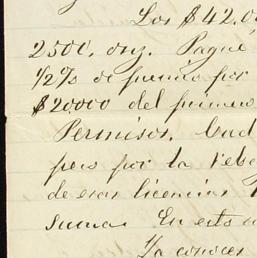 Los $42.0
2500, onz. Pagué
1/2% de premio por
$20.000 del primero
Permisos. Cud
pero por la reba
de esas licencias
suma. En esto
Ya conoces